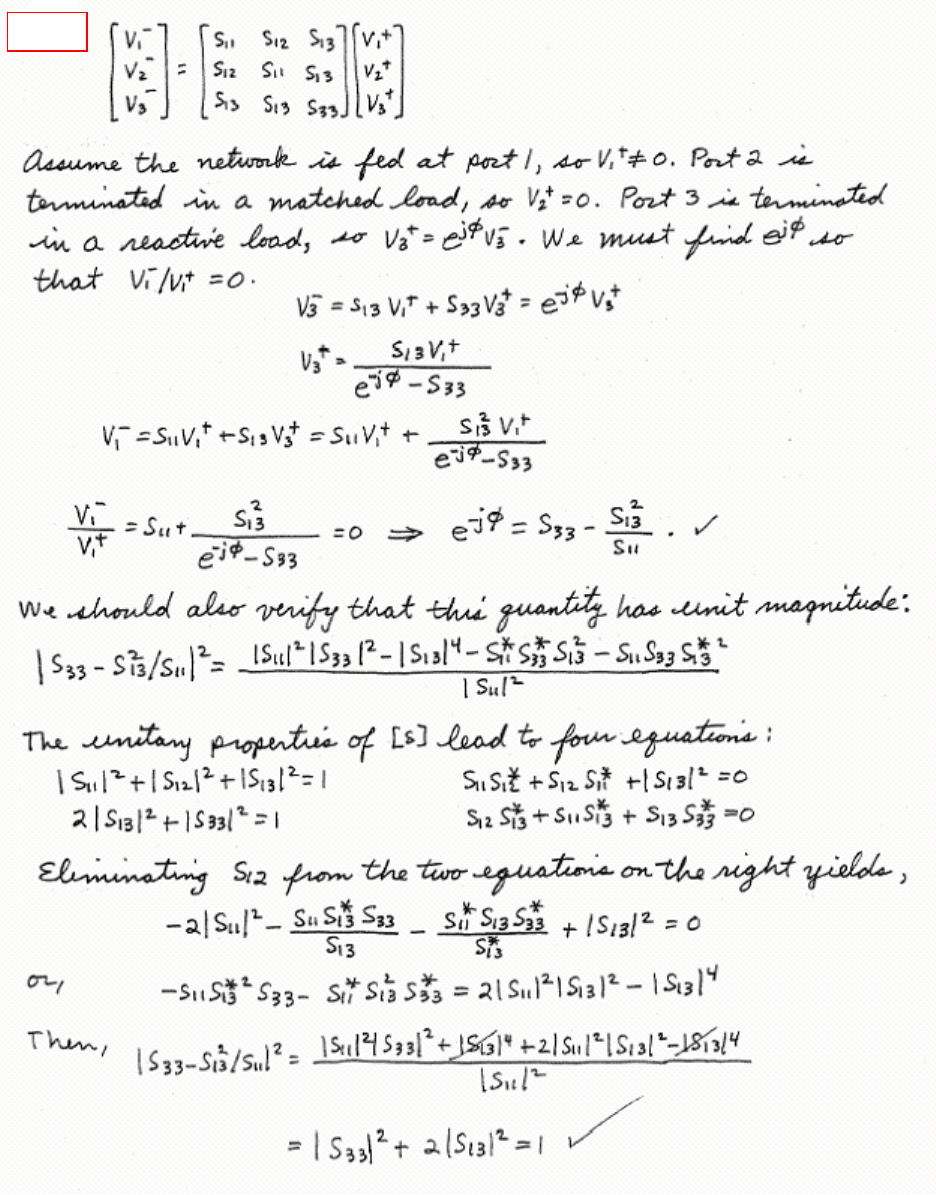 [V₁⁻ V₂⁻ V₃⁻] = [S₁₁ S₁₂ S₁₃; S₁₂ S₁₁ S₁₃; S₁₃ S₁₃ S₃₃] [V₁⁺ V₂⁺ V₃⁺]
Assume the network is fed at port 1, so V₁⁺ ≠ 0. Port 2 is
terminated in a matched load, so V₂⁺ = 0. Port 3 is terminated
in a reactive load, so V₃⁺ = e^{jϕ} V₃⁻. We must find e^{jϕ} so
that V₁⁻/V₁⁺ = 0.
V₃⁻ = S₁₃ V₁⁺ + S₃₃ V₃⁺ = e^{-jϕ} V₃⁺
V₃⁺ = S₁₃ V₁⁺ / (e^{-jϕ} - S₃₃)
V₁⁻ = S₁₁ V₁⁺ + S₁₃ V₃⁺ = S₁₁ V₁⁺ + S₁₃² V₁⁺ / (e^{-jϕ} - S₃₃)
V₁⁻/V₁⁺ = S₁₁ + S₁₃² / (e^{-jϕ} - S₃₃) = 0 ⇒ e^{-jϕ} = S₃₃ - S₁₃²/S₁₁ . ✓
We should also verify that this quantity has unit magnitude:
|S₃₃ - S₁₃²/S₁₁|² = (|S₁₁|²|S₃₃|² - |S₁₃|⁴ - S₁₁* S₃₃* S₁₃² - S₁₁ S₃₃ S₁₃*²) / |S₁₁|²
The unitary properties of [S] lead to four equations:
|S₁₁|² + |S₁₂|² + |S₁₃|² = 1 S₁₁ S₁₂* + S₁₂ S₁₁* + |S₁₃|² = 0
2|S₁₃|² + |S₃₃|² = 1 S₁₂ S₁₃* + S₁₁ S₁₃* + S₁₃ S₃₃* = 0
Eliminating S₁₂ from the two equations on the right yields,
-2|S₁₁|² - S₁₁ S₁₃* S₃₃ / S₁₃ - S₁₁* S₁₃ S₃₃* / S₁₃* + |S₁₃|² = 0
or, -S₁₁ S₁₃*² S₃₃ - S₁₁* S₁₃² S₃₃* = 2|S₁₁|²|S₁₃|² - |S₁₃|⁴
Then, |S₃₃ - S₁₃²/S₁₁|² = (|S₁₁|²|S₃₃|² + |S₁₃|⁴ + 2|S₁₁|²|S₁₃|² - |S₁₃|⁴) / |S₁₁|²
= |S₃₃|² + 2|S₁₃|² = 1 ✓